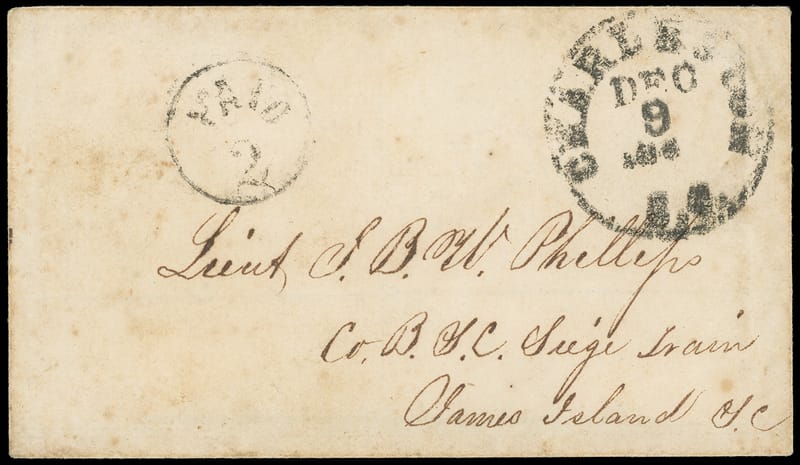 PAID
2
CHARLESTON
DEC
9
Lieut J. B. W. Phillips
Co. B. S. C. Siege Train
James Island S. C